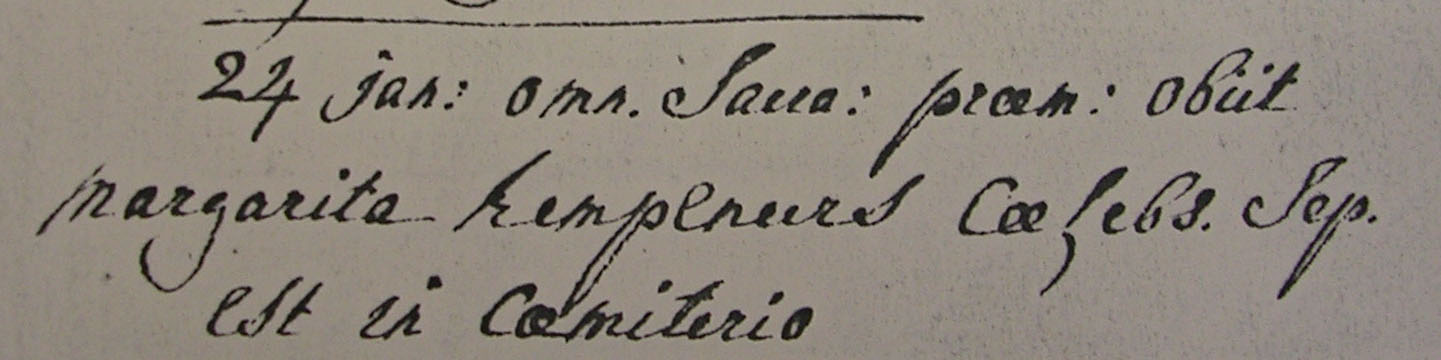 24 jan: omn. Sacra: præm: obiit
margarita kempeneers Cælebs. Sep.
est in Cœmiterio